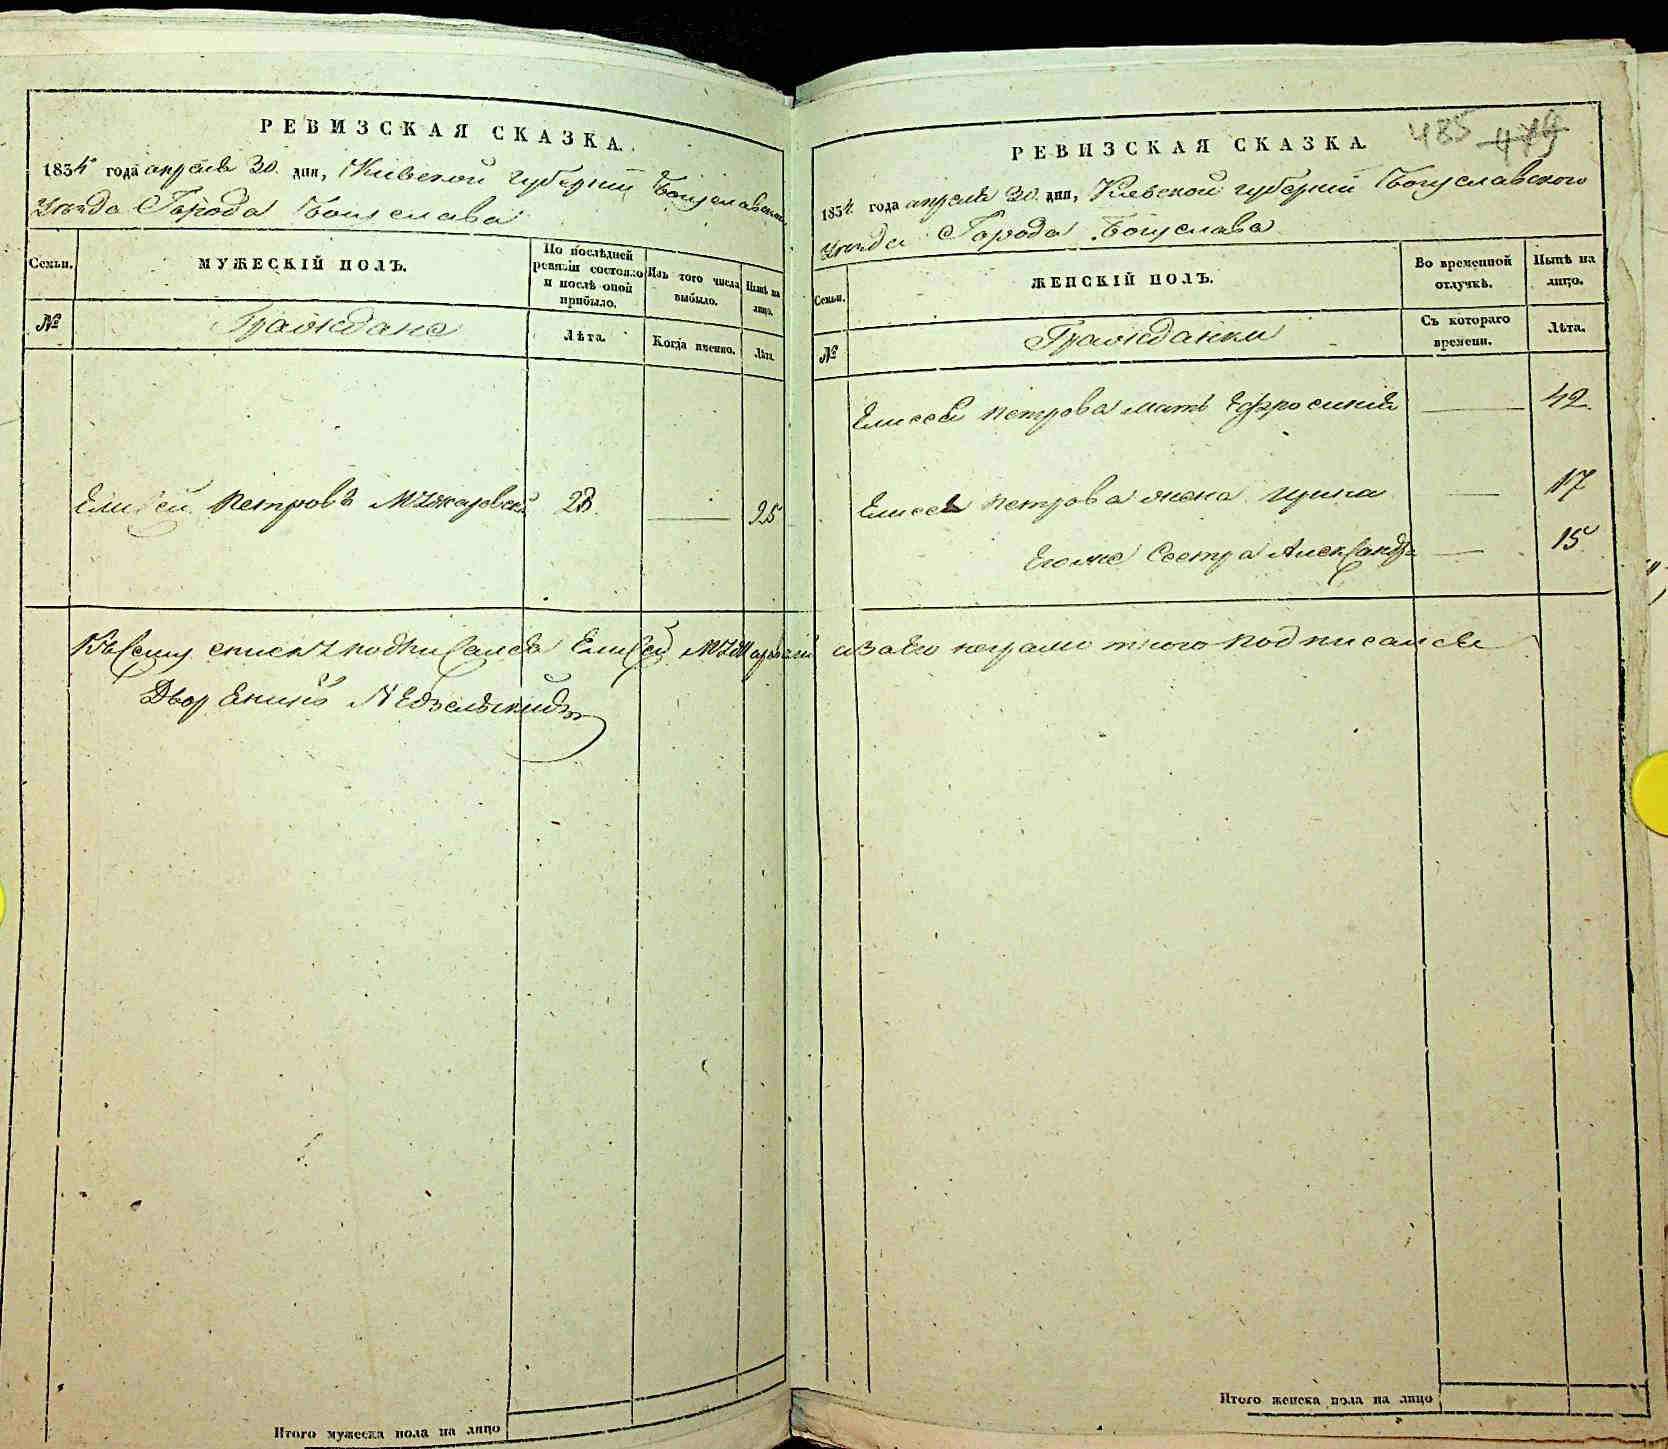 РЕВИЗСКАЯ СКАЗКА.
1834 года апреля 30. дня, Киевской губернии Богуславского
Уезда Города Богуслава
Семьи.
МУЖЕСКІЙ ПОЛЪ.
По послѣдней ревизіи состояло и послѣ оной прибыло.
Изъ того числа выбыло.
Нынѣ на лицо.
№
Граждане
Лѣта.
Когда именно.
Лѣта.
Елисей Петровъ
23
25
Къ сему списку подписался Елисей а за его неграмотного подписался
Дворенинъ
Итого мужеска пола на лицо
485 479
РЕВИЗСКАЯ СКАЗКА.
1834 года апреля 30. дня, Киевской губернии Богуславского
Уезда Города Богуслава
Семьи.
ЖЕНСКІЙ ПОЛЪ.
Во временной отлучкѣ.
Нынѣ на лицо.
№
Гражданки
Съ котораго времени.
Лѣта.
Елисея Петрова мать Ефросиния 42
Елисея Петрова жена Ирина 17
Егоже Сестра Александра 15
Итого женска пола на лицо